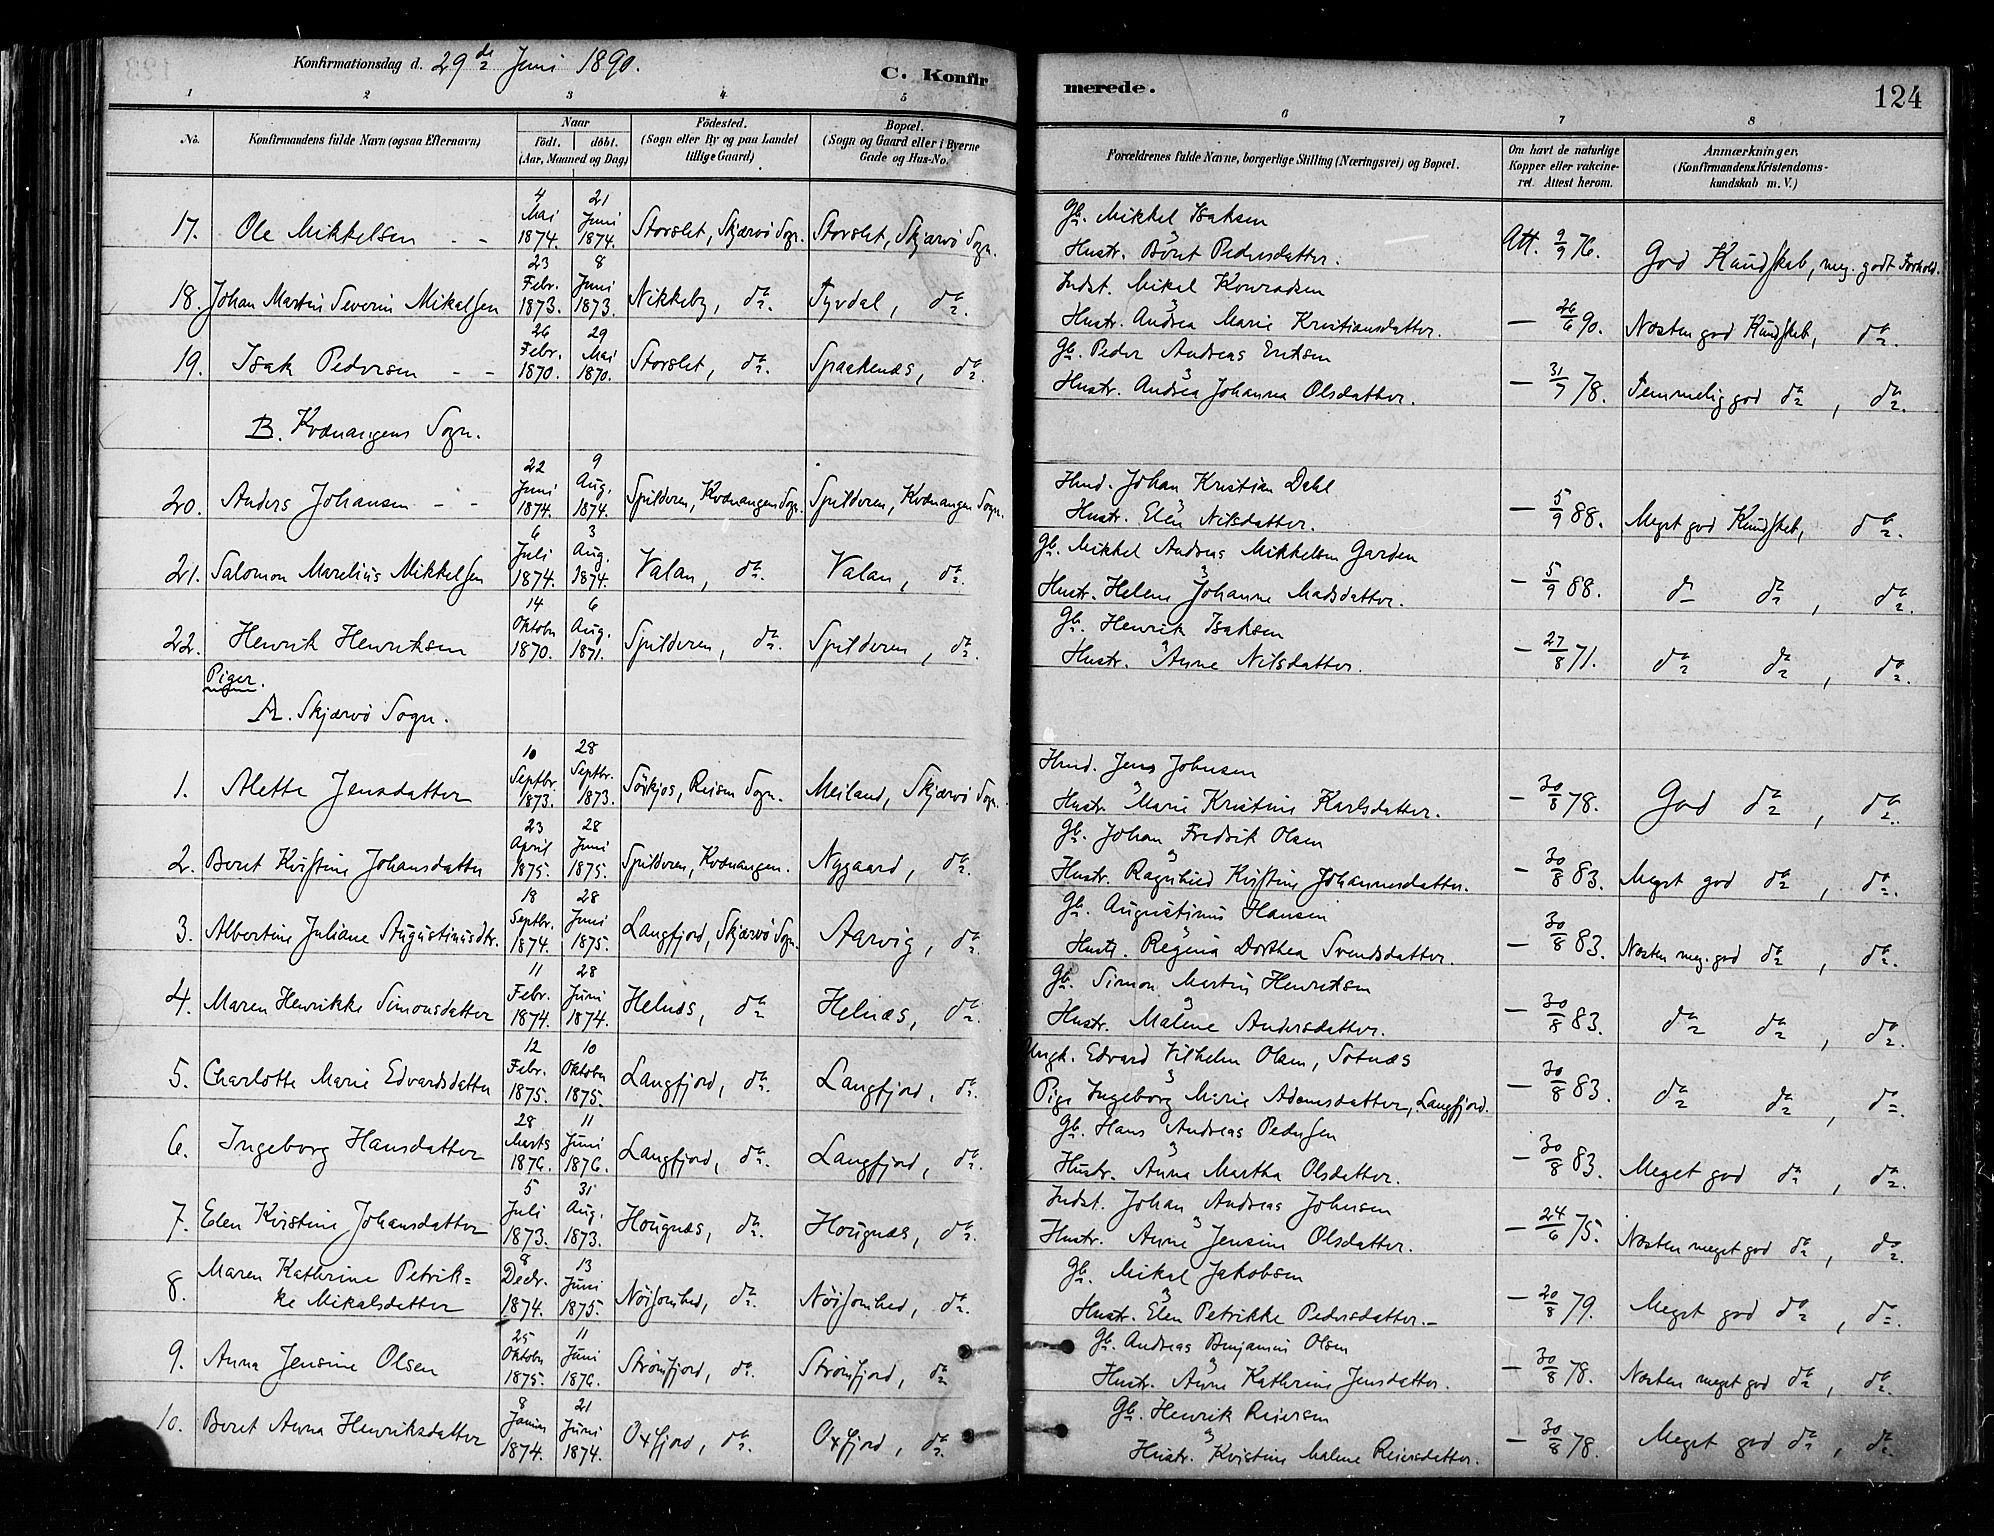 Konfirmationsdag d. 29de Juni 1890.
C. Konfir
merede.
124
1 2 3 4 5 6 7 8
No.
Konfirmandens fulde Navn (ogsaa Efternavn)
Naar
födt. döbt.
(Aar, Maaned og Dag)
Födested.
(Sogn eller By og paa Landet
tillige Gaard)
Bopæl.
(Sogn og Gaard eller i Byerne
Gade og Hus-No.
Forældrenes fulde Navne, borgerlige Stilling (Næringsvei) og Bopæl.
Om havt de naturlige
Kopper eller vakcine-
ret. Attest herom.
Anmærkninger.
(Konfirmandens Kristendoms-
kundskab m. V.)
17. Ole Mikkelsen - - 4 Mai 1874. 21 Juni 1874. Storslet, Skjærvö Sogn. Storslet, Skjærvö Sogn. Gb. Mikkel Isaksen
Hustr. Beret Pedersdatter. Att. 9/9 76. God Kundskab, meg. godt Forhold.
18. Johan Martin Severin Mikalsen 23 Febr. 1873. 8 Juni 1873. Nikkeby, do. Tyvdal, do. Indst. Mikal Konradsen
Hustr. Andrea Marie Kristiansdatter. - 26/6 90. Næsten god Kundskab, do.
19. Isak Pedersen - - 26 Febr. 1870. 29 Mai 1870. Storslet, do. Spaakenæs, do. Gb. Peder Andreas Eriksen
Hustr. Andrea Johanna Olsdatter. - 31/7 78. Temmelig god do, do.
B. Kvænangens Sogn.
20. Anders Johansen - - 22 Juni 1874. 9 Aug. 1874. Spilderen, Kvænangens Sogn. Spilderen, Kvænangen Sogn. Hmd. Johan Kristian Dahl
Hustr. Elen Nilsdatter. - 5/9 88. Meget god Kundskab, do.
21. Salomon Marelius Mikkelsen 6 Juli 1874. 3 Aug. 1874. Valan, do. Valan, do. Gb. Mikkel Andreas Mikkelsen Garden
Hustr. Helene Johanne Madsdatter. - 5/9 88. do do, do.
22. Henrik Henriksen 14 Oktober 1870. 6 Aug. 1871. Spilderen, do. Spilderen, do. Gb. Henrik Isaksen
Hustr. Anne Nilsdatter. - 27/8 71. do do, do.
Piger.
A. Skjærvö Sogn.
1. Alette Jensdatter 10 Septbr. 1873. 28 Septbr. 1873. Sörkjos, Reisen Sogn. Meiland, Skjærvö Sogn. Hmd. Jens Johnsen
Hustr. Marie Kristine Karlsdatter. - 30/8 78. God do, do.
2. Beret Kristine Johansdatter 23 April 1875. 28 Juni 1875. Spilderen, Kvænangen. Nygaard, do. Gb. Johan Fredrik Olsen
Hustr. Ragnhild Kristine Johannesdatter. - 30/8 83. Meget god do, do.
3. Albertine Juliane Augustinusdtr. 18 Septbr. 1874. 28 Juni 1875. Langfjord, Skjærvö Sogn. Aarvig, do. Gb. Augustinus Hansen
Hustr. Regina Dorthea Svendsdatter. - 30/8 83. Næsten meg. god do, do.
4. Maren Henrikke Simonsdatter 11 Febr. 1874. 28 Juni 1874. Helnæs, do Helnæs, do. Gb. Simon Martin Henriksen
Hustr. Malene Andersdatter. - 30/8 83. do do, do.
5. Charlotte Marie Edvardsdatter 12 Febr. 1875. 10 Oktober 1875. Langfjord, do. Langfjord, do. Ungk. Edvard Vilhelm Olsen, Sotnæs
Pige Ingeborg Marie Adamsdatter, Langfjord. - 30/8 83. do do, do.
6. Ingeborg Hansdatter 28 Marts 1876. 11 Juni 1876. Langfjord, do. Langfjord, do. Gb. Hans Andreas Pedersen
Hustr. Anna Martha Olsdatter. - 30/8 83. Meget god do, do.
7. Elen Kristine Johansdatter 5 Juli 1873. 31 Aug. 1873. Hougnæs, do. Hougnæs, do. Indst. Johan Andreas Johnsen
Hustr. Anne Jensine Olsdatter. - 24/6 75. Næsten meget god do, do.
8. Maren Kathrine Petrik=
ke Mikalsdatter 8 Decbr. 1874. 13 Juni 1875. Nöisomhed, do. Nöisomhed, do. Gb. Mikal Jakobsen
Hustr. Elen Petrikke Pedersdatter.- - 20/8 79. Meget god do, do.
9. Anna Jensine Olsen 25 Oktober 1875. 11 Juni 1876. Strömfjord, do. Strömfjord, do Gb. Andreas Benjamin Olsen
Hustr. Anne Kathrine Jensdatter. - 30/8 78. Næsten meget god do, do.
10. Beret Anna Henriksdatter 8 Januar 1874. 21 Juni 1874. Oxfjord, do. Oxfjord, do. Gb. Henrik Reiersen
Hustr. Kristine Malene Reiersdatter. - 30/8 78. Meget god do, do.